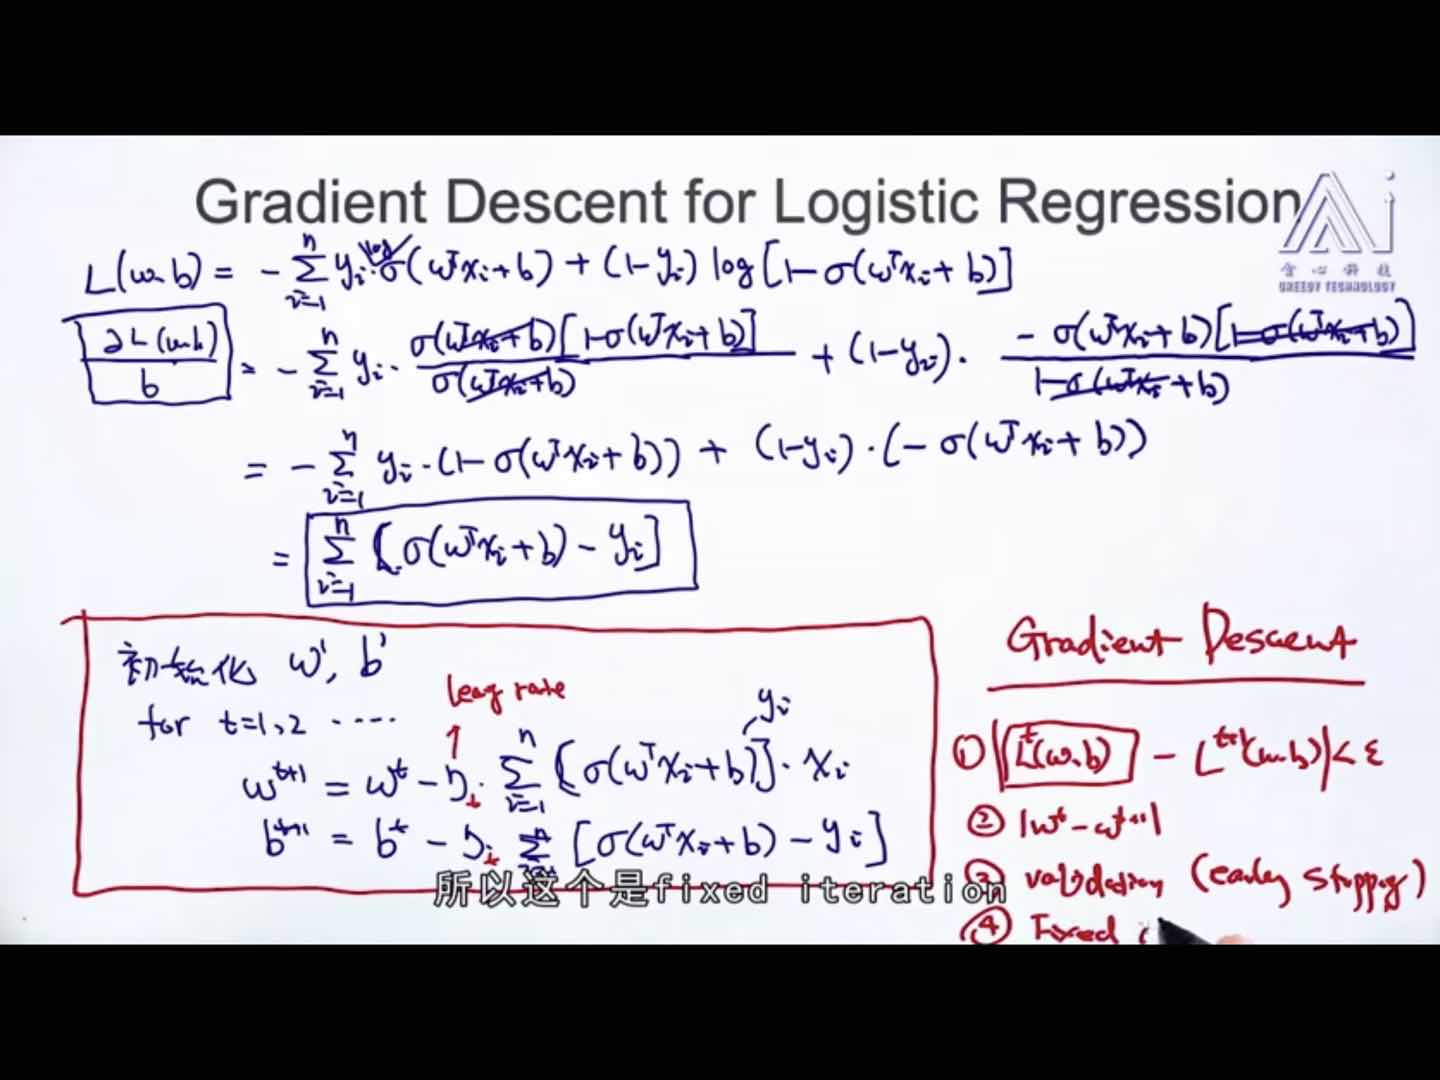 Gradient Descent for Logistic Regression
贪心科技
GREEDY TECHNOLOGY
L(w,b) = - Σ_{i=1}^{n} y_i · log σ(w^T x_i + b) + (1-y_i) log[1-σ(w^T x_i + b)]
∂L(w,b) / b = - Σ_{i=1}^{n} y_i · σ(w^T x_i + b)[1-σ(w^T x_i + b)] / σ(w^T x_i + b) + (1-y_i) · -σ(w^T x_i + b)[1-σ(w^T x_i + b)] / 1-σ(w^T x_i + b)
= - Σ_{i=1}^{n} y_i · (1-σ(w^T x_i + b)) + (1-y_i) · (-σ(w^T x_i + b))
= Σ_{i=1}^{n} [σ(w^T x_i + b) - y_i]
初始化 w^1, b^1
for t=1,2 ....
learg rate
w^{t+1} = w^t - η_t · Σ_{i=1}^{n} [σ(w^T x_i + b)] · x_i
y_i
b^{t+1} = b^t - η_t Σ_{i=1}^{n} [σ(w^T x_i + b) - y_i]
Gradient Descent
① |L^t(w,b) - L^{t+1}(w,b)| < ε
② |w^t - w^{t+1}|
③ validation (early stopping)
④ Fixed i
所以这个是fixed iteration